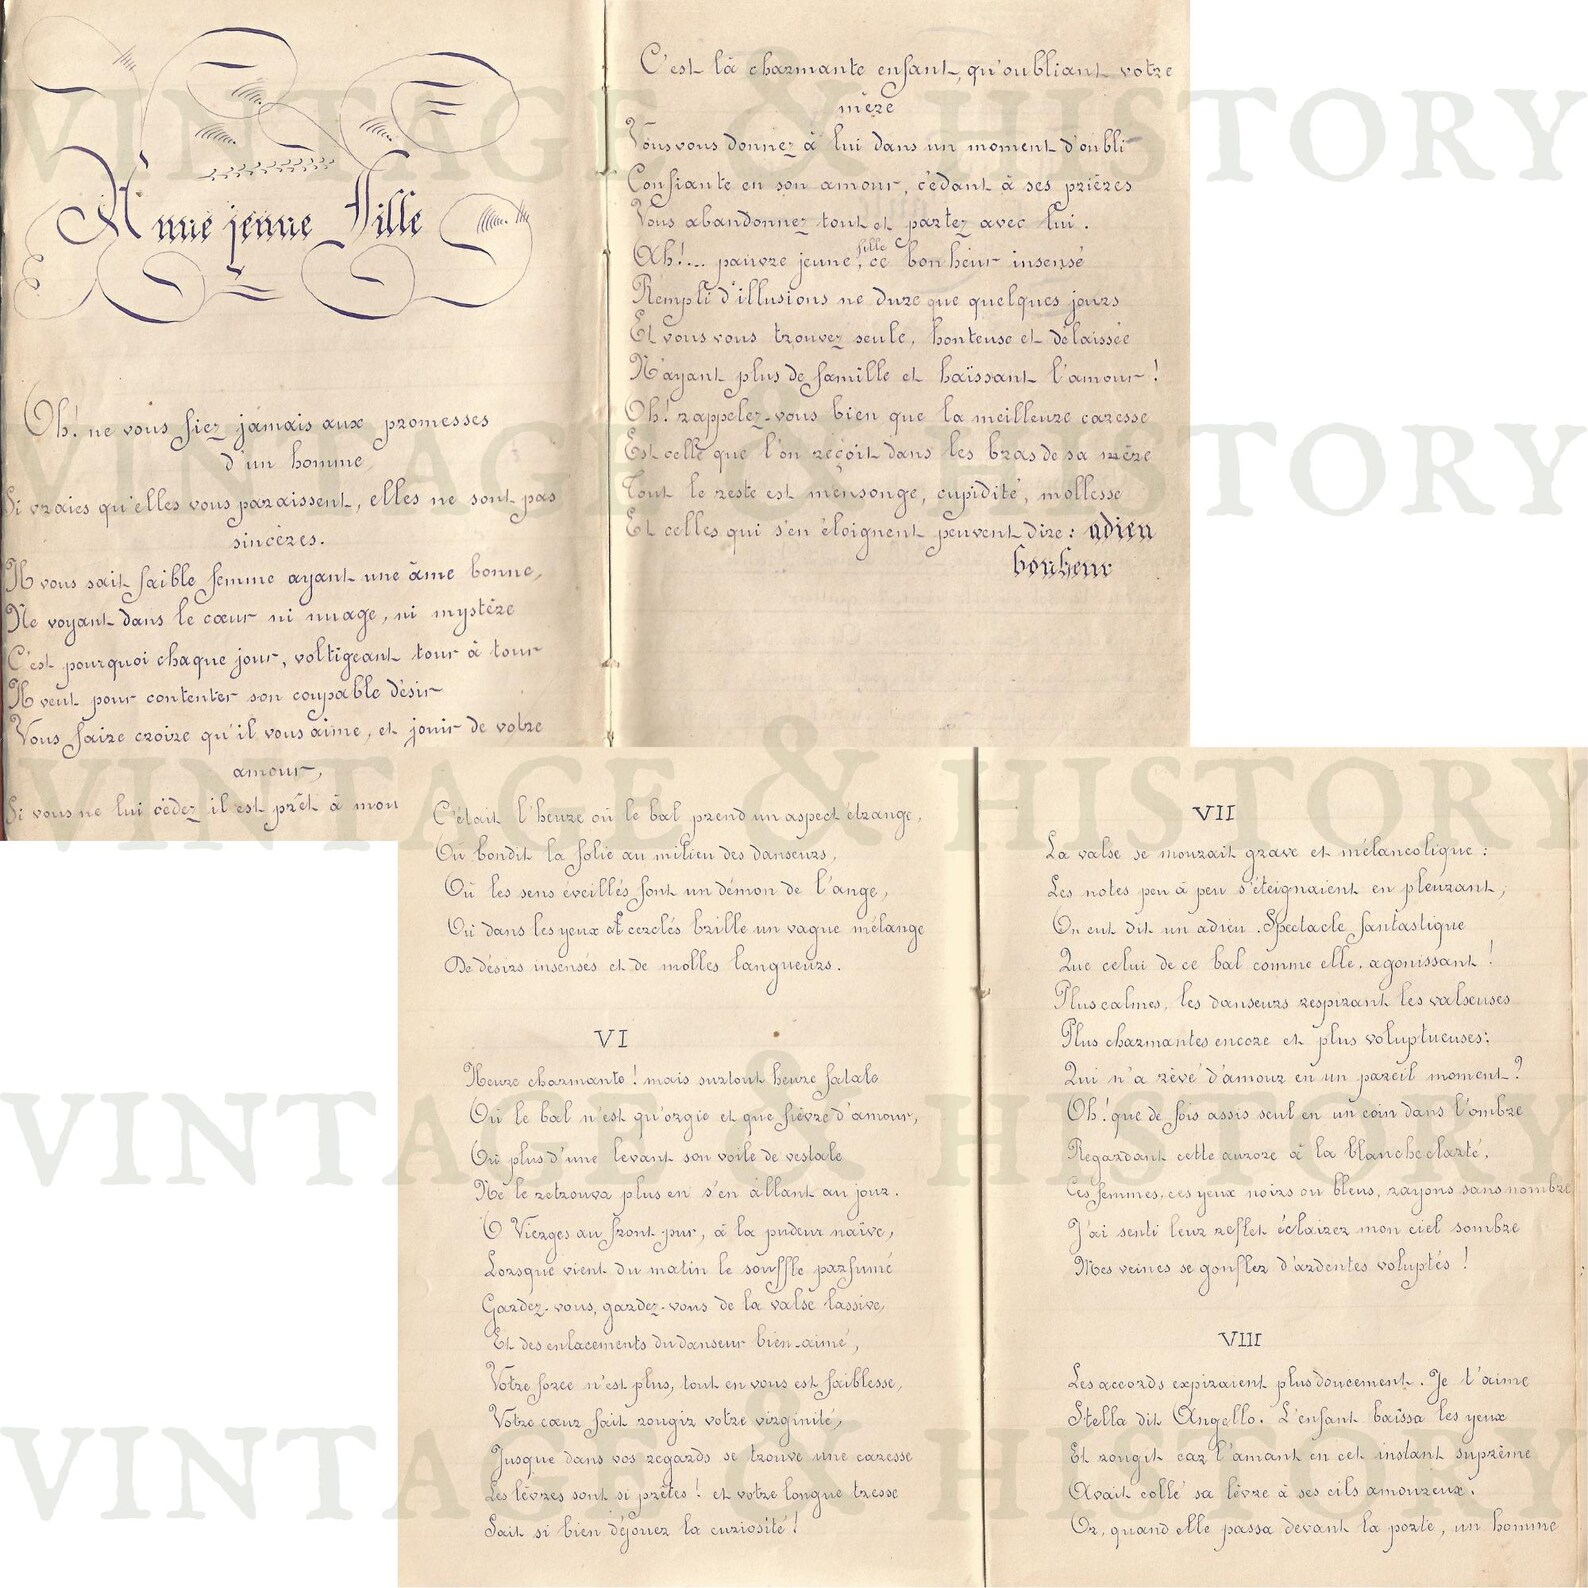 A une jeune Fille
Oh! ne vous fiez jamais aux promesses
d'un homme,
Si vraies qu'elles vous paraissent, elles ne sont pas
sincères.
Il vous sait faible femme ayant une âme bonne,
Ne voyant dans le cœur ni nuage, ni mystère
C'est pourquoi chaque jour, voltigeant tour à tour
Il veut pour contenter son coupable désir
Vous faire croire qu'il vous aime, et jouir de votre
amour,
Si vous ne lui cédez il est prêt à mou
C'est là charmante enfant, qu'oubliant votre
mère
Vous vous donnez à lui dans un moment d'oubli
Confiante en son amour, cédant à ses prières
Vous abandonnez tout et partez avec lui.
Ah!... pauvre jeune fille, ce bonheur insensé
Rempli d'illusions ne dure que quelques jours
Et vous vous trouvez seule, honteuse et délaissée
N'ayant plus de famille et haïssant l'amour!
Oh! rappelez-vous bien que la meilleure caresse
Est celle que l'on reçoit dans les bras de sa mère
Tout le reste est mensonge, cupidité, mollesse
Et celles qui s'en éloignent peuvent dire: adieu
bonheur
C'était l'heure où le bal prend un aspect étrange,
Où bondit la folie au milieu des danseurs,
Où les sens éveillés font un démon de l'ange,
Où dans les yeux cerclés brille un vague mélange
De désirs insensés et de molles langueurs.
VI
Heure charmante! mais surtout heure fatale
Où le bal n'est qu'orgie et que fièvre d'amour,
Où plus d'une levant son voile de vestale
Ne le retrouva plus en s'en allant au jour.
O Vierges au front pur, à la pudeur naïve,
Lorsque vient du matin le souffle parfumé
Gardez-vous, gardez-vous de la valse lassive,
Et des enlacements du danseur bien-aimé,
Votre force n'est plus, tout en vous est faiblesse,
Votre cœur fait rougir votre virginité,
Jusque dans vos regards se trouve une caresse
Les lèvres sont si prêtes! et votre longue tresse
Sait si bien déjouer la curiosité!
VII
La valse se mourait grave et mélancolique:
Les notes peu à peu s'éteignaient en pleurant,
On eut dit un adieu. Spectacle fantastique
Que celui de ce bal comme elle, agonissant!
Plus calmes, les danseurs respirant les valseuses
Plus charmantes encore et plus voluptueuses;
Qui n'a rêvé d'amour en un pareil moment?
Oh! que de fois assis seul en un coin dans l'ombre
Regardant cette aurore à la blanche clarté,
Ces femmes, ces yeux noirs ou bleus, rayons sans nombre
J'ai senti leur reflet éclairer mon ciel sombre
Mes veines se gonfler d'ardentes voluptés!
VIII
Les accords expiraient plus doucement. Je t'aime
Stella dit Angello. L'enfant baissa les yeux
Et rougit car l'amant en cet instant suprême
Avait collé sa lèvre à ses cils amoureux.
Or, quand elle passa devant la porte, un homme
VINTAGE & HISTORY
VINTAGE & HISTORY
VINTAGE & HISTORY
VINTAGE & HISTORY
VINTAGE & HISTORY